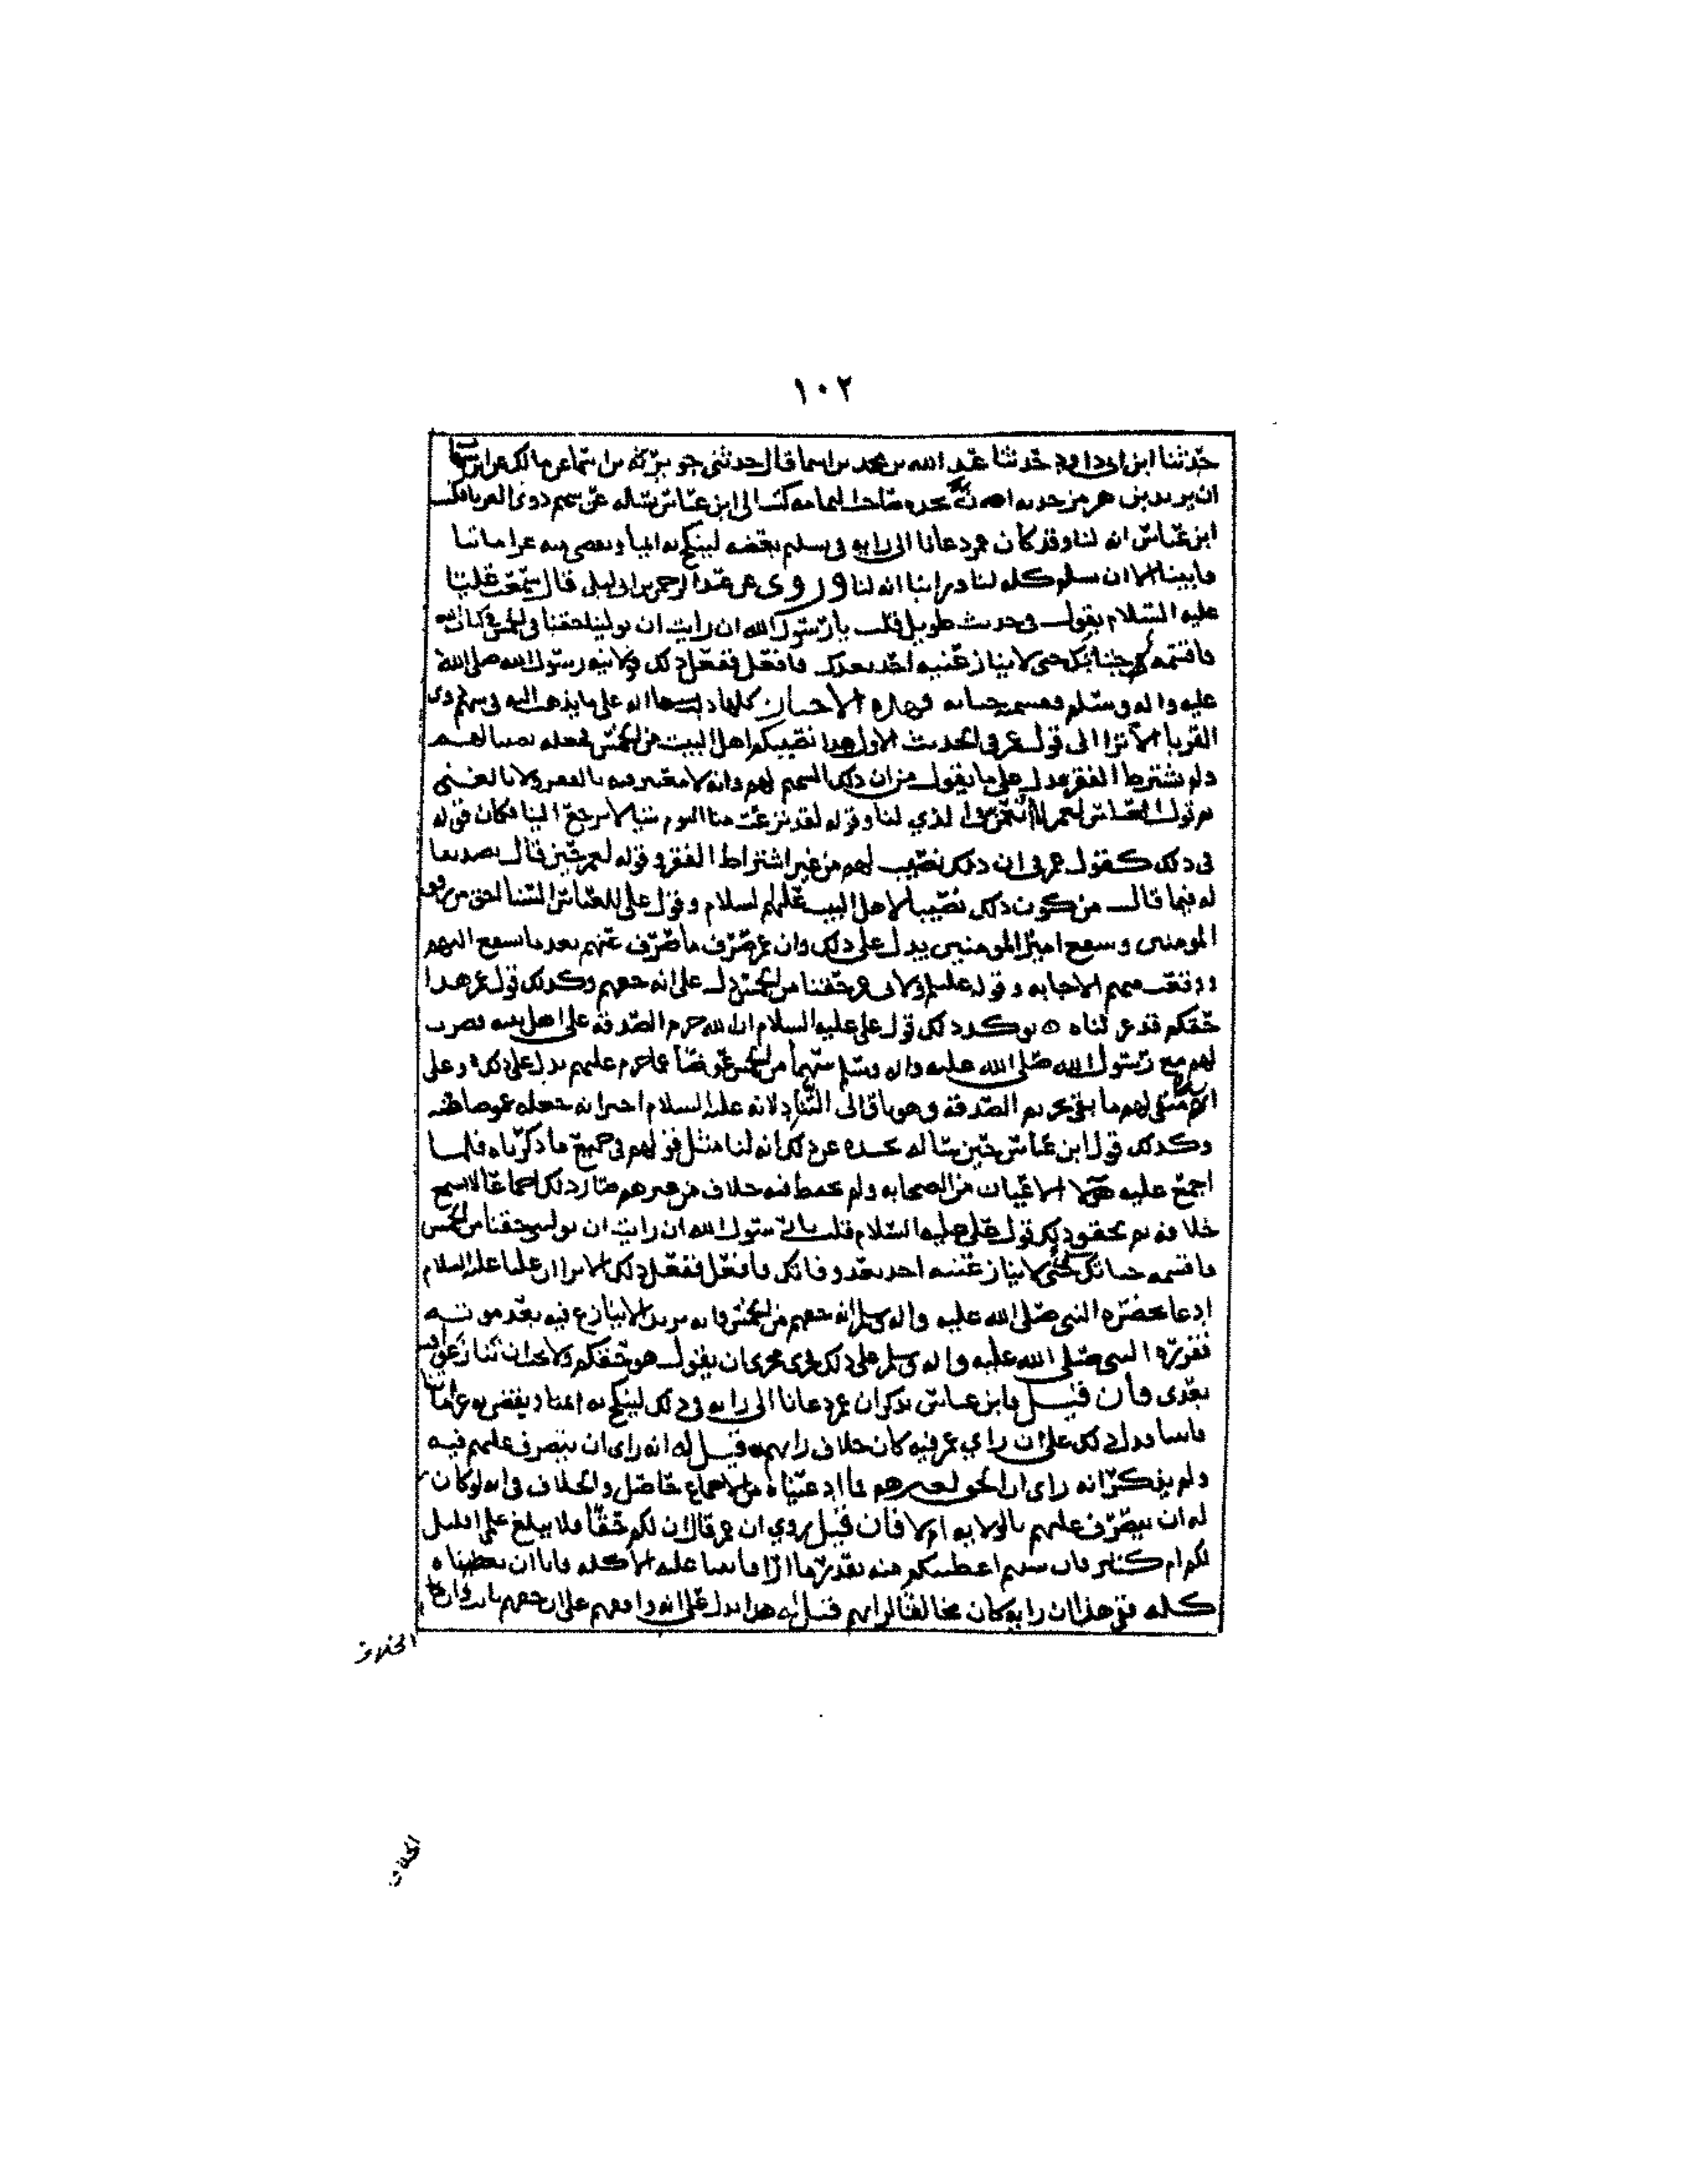 ١٠٢
حدثنا ابن ابي داود حدثنا عبد الله بن محمد بن اسما قال حدثني جويرية بن اسما عن مالك عن ابن شهاب
ان يزيد بن هرمز حدثه ان نجده صاحب اليمامه كتب الى ابن عباس يساله عن سهم ذوي القربا فكتب
ابن عباس انه لنا وقد كان عمر دعانا الى ان ينكح منه ايمنا ويقضي منه عن غارمنا
فابينا الا ان يسلمه كله لنا وراينا انه لنا وروى عن عبد الرحمن بن ابي ليلى قال سمعت عليا
عليه السلام يقول في حديث طويل قلت يا رسول الله ان رايت ان توليني حقنا في الخمس في كتاب الله
فاقسمه حياتك حتى لا ينازعنيه احد بعدك فافعل ففعل ذلك فولانيه رسول الله صلى الله
عليه واله وسلم فقسمته حياته وهذه الاخبار كلها داله على ما يذهب اليه في سهم ذوي
القربا الا ترا الى قول عمر في الحديث الاول هذا نصيبكم اهل البيت من الخمس فجعله نصيبا لهم
ولم يشترط الفقر فدل على ما يقول من ان ذلك السهم لهم وانه لا معتبر فيه بالفقر ولا بالغنى
ثم قول العباس لعمر لا تغمز في الذي لنا وقوله لقد نزعت منا اليوم شيا لا يرجع الينا فكان قوله
في ذلك كقول عمر في ان ذلك نصيب لهم من غير اشتراط الفقر وقوله لعمر حين قال تصديقا
له فيما قال من كون ذلك نصيبا لاهل البيت عليهم السلام وقول علي للعباس السنا احق من رفد
المومنين وشفع امير المومنين يدل على ذلك وان عمر صرف ما صرف عنهم بعد ما شفع اليهم
ووقعت منهم الاجابه وقول علي ولاني عمر حقنا من الخمس دل على انه حقهم وكذلك قول عمر هذا
حقكم قد عزلناه ه يوكد ذلك قول علي عليه السلام ان الله حرم الصدقه على اهل بيته فضرب
لهم مع رسول الله صلى الله عليه واله وسلم سهما من الخمس عوضا عما حرم عليهم يدل على ذلك وعلى
انه يبقى لهم ما بقي تحريم الصدقه وهو باق الى التناد لانه عليه السلام اخبر انه جعله عوضا منه
وكذلك قول ابن عباس حين ساله نجده عن ذلك انه لنا مثل قولهم في جميع ما ذكرناه فلما
اجمع عليه هولا الاعيان من الصحابه ولم يحفظ فيه خلاف من غيرهم صار ذلك اجماعا لا يسع
خلافه ثم تحقق ذلك قول علي عليه السلام قلت يا رسول الله ان رايت ان توليني حقنا من الخمس
فاقسمه حياتك حتى لا ينازعنيه احد بعد وفاتك فافعل ففعل ذلك الا ترا ان عليا عليه السلام
ادعا بحضرة النبي صلى الله عليه واله وسلم انه حقهم من الخمس وانه يريد الا ينازع فيه بعد موته
فقرره النبي صلى الله عليه واله وسلم على ذلك فجرى مجرى ان يقول هو حقكم ولا يجوز ان تنازعوا فيه
بعدي فان قيل فابن عباس يذكر ان عمر دعانا الى رايه في ذلك لينكح به ايمنا ويقضي به غارمنا
فابينا فدل ذلك على ان راي عمر فيه كان خلاف رايهم قيل له انه راى ان يتصرف عليهم فيه
ولم يذكر انه راى ان الحق لغيرهم فما ادعيناه من الاجماع حاصل والخلاف في انه لو كان
له ان يتصرف عليهم بالولايه ام لا فان قيل روي ان عمر قال ان لكم حقا فلا يبلغ علمي اقليل
لكم ام كثير فان شيتم اعطيتكم منه بقدر ما ارا فابينا عليه الا كله فابا ان يعطيناه
كله ففي هذا ان رايه كان مخالفا لرايهم قيل له هذا يدل على انه وافقهم على ان حقهم ثابت وان